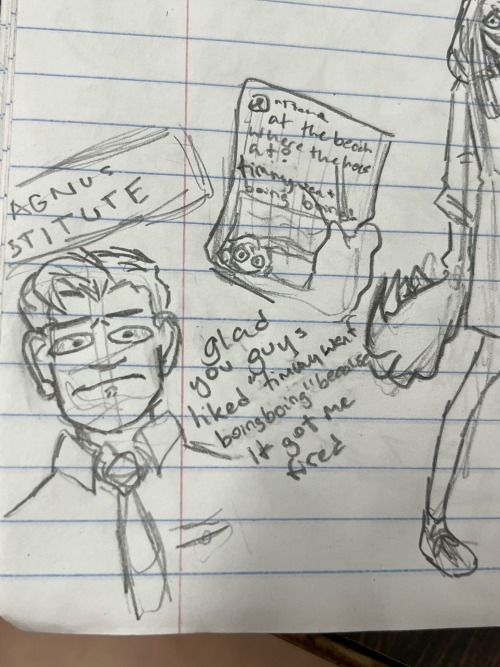 AGNUS
STITUTE
at the beach
where the hoes
at?
timmy went
boing boing
glad
you guys
liked "timmy went
boing boing" because
it got me
fired